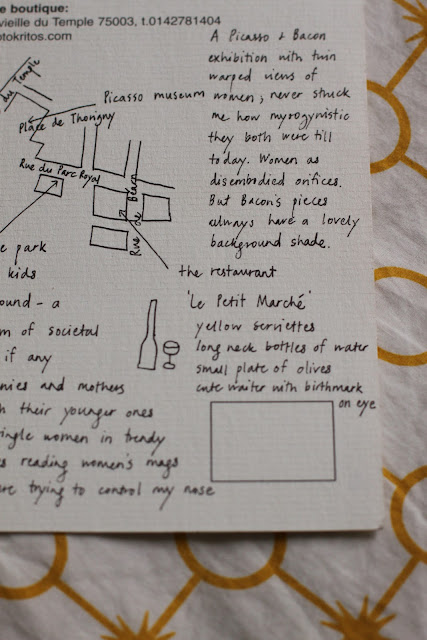 e boutique:
vieille du Temple 75003, t.0142781404
otokritos.com
A Picasso + Bacon
exhibition with twin
warped views of
women; never struck
me how myrogynistic
they both were till
today. Women as
disembodied orifices.
But Bacon's pieces
always have a lovely
background shade.
du Temple
Picasso museum
Place de Thorigny
Rue du Parc Royal
Rue de Béarn
e park
kids
the restaurant
ound - a
m of societal
if any
nies and mothers
h their younger ones
ingle women in trendy
s reading women's mags
ere trying to control my nose
'Le Petit Marché'
yellow serviettes
long neck bottles of water
small plate of olives
cute waiter with birthmark
on eye